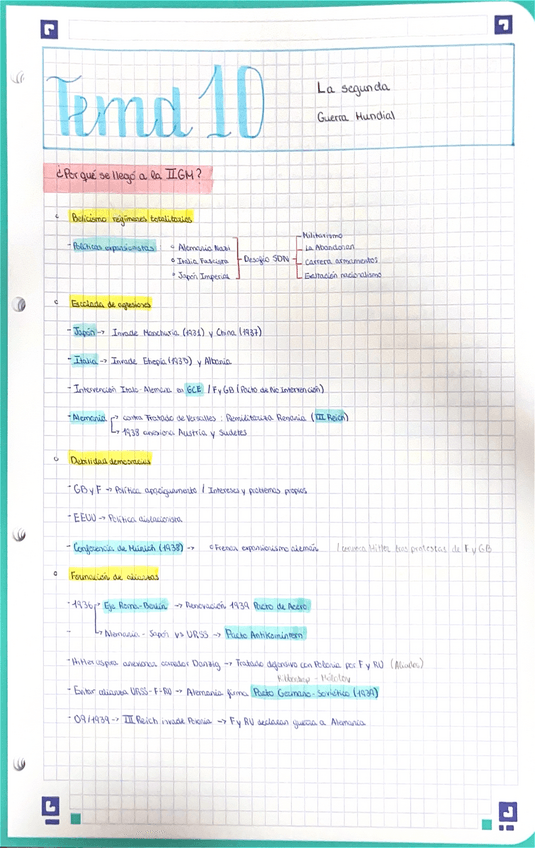 Tema 10
La segunda
Guerra Mundial
¿Por qué se llegó a la IIGM?
Belicismo regímenes totalitarios
- Políticas expansionistas
Alemania Nazi
Italia Fascista
Japón Imperial
Desafío SDN
Militarismo
La Abandonan
Carrera armamentos
Exaltación nacionalismo
Escalada de agresiones
- Japón → Invade Manchuria (1931) y China (1937)
- Italia → Invade Etiopía (1935) y Albania
- Intervención Italo-Alemana en GCE / F y GB (Pacto de No Intervención)
- Alemania → contra Tratado de Versalles: Remilitariza Renania (III Reich)
→ 1938 anexiona Austria y Sudetes
Debilidad democracias
- GB y F → Política apaciguamiento / Intereses y problemas propios
- EEUU → Política aislacionista
- Conferencia de Múnich (1938) → Frenar expansionismo alemán / Hitler tras protestas de F y GB
Formación de alianzas
- 1936 Eje Roma-Berlín → Renovación 1939 Pacto de Acero
- → Alemania - Japón vs URSS → Pacto Antikomintern
- Hitler aspira anexionar corredor Danzig → Tratado defensivo con Polonia por F y RU (Aliados)
Ribbentrop - Mólotov
- Evitar alianza URSS-F-RU → Alemania firma Pacto Germano-Soviético (1939)
- 09/1939 → III Reich invade Polonia → F y RU declaran guerra a Alemania